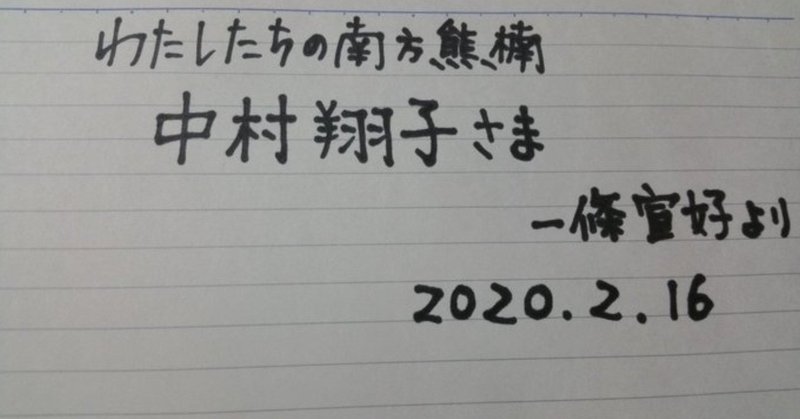 わたしたちの南方熊楠
中村翔子さま
一條宣好より
2020.2.16